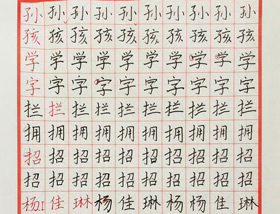 孙孙孙孙孙孙孙孙孙孙
孩孩孩孩孩孩孩孩孩孩
学学学学学学学学学学
字字字字字字字字字字
拦拦拦拦拦拦拦拦拦拦
拥拥拥拥拥拥拥拥拥拥
招招招招招招招招招招
招招招招招招招招招招
杨佳琳杨佳琳杨佳琳杨